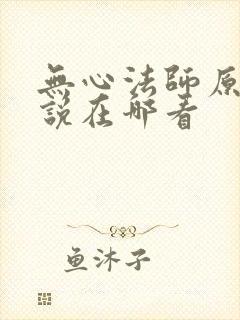 無心法師原
說在哪看
鱼沐子